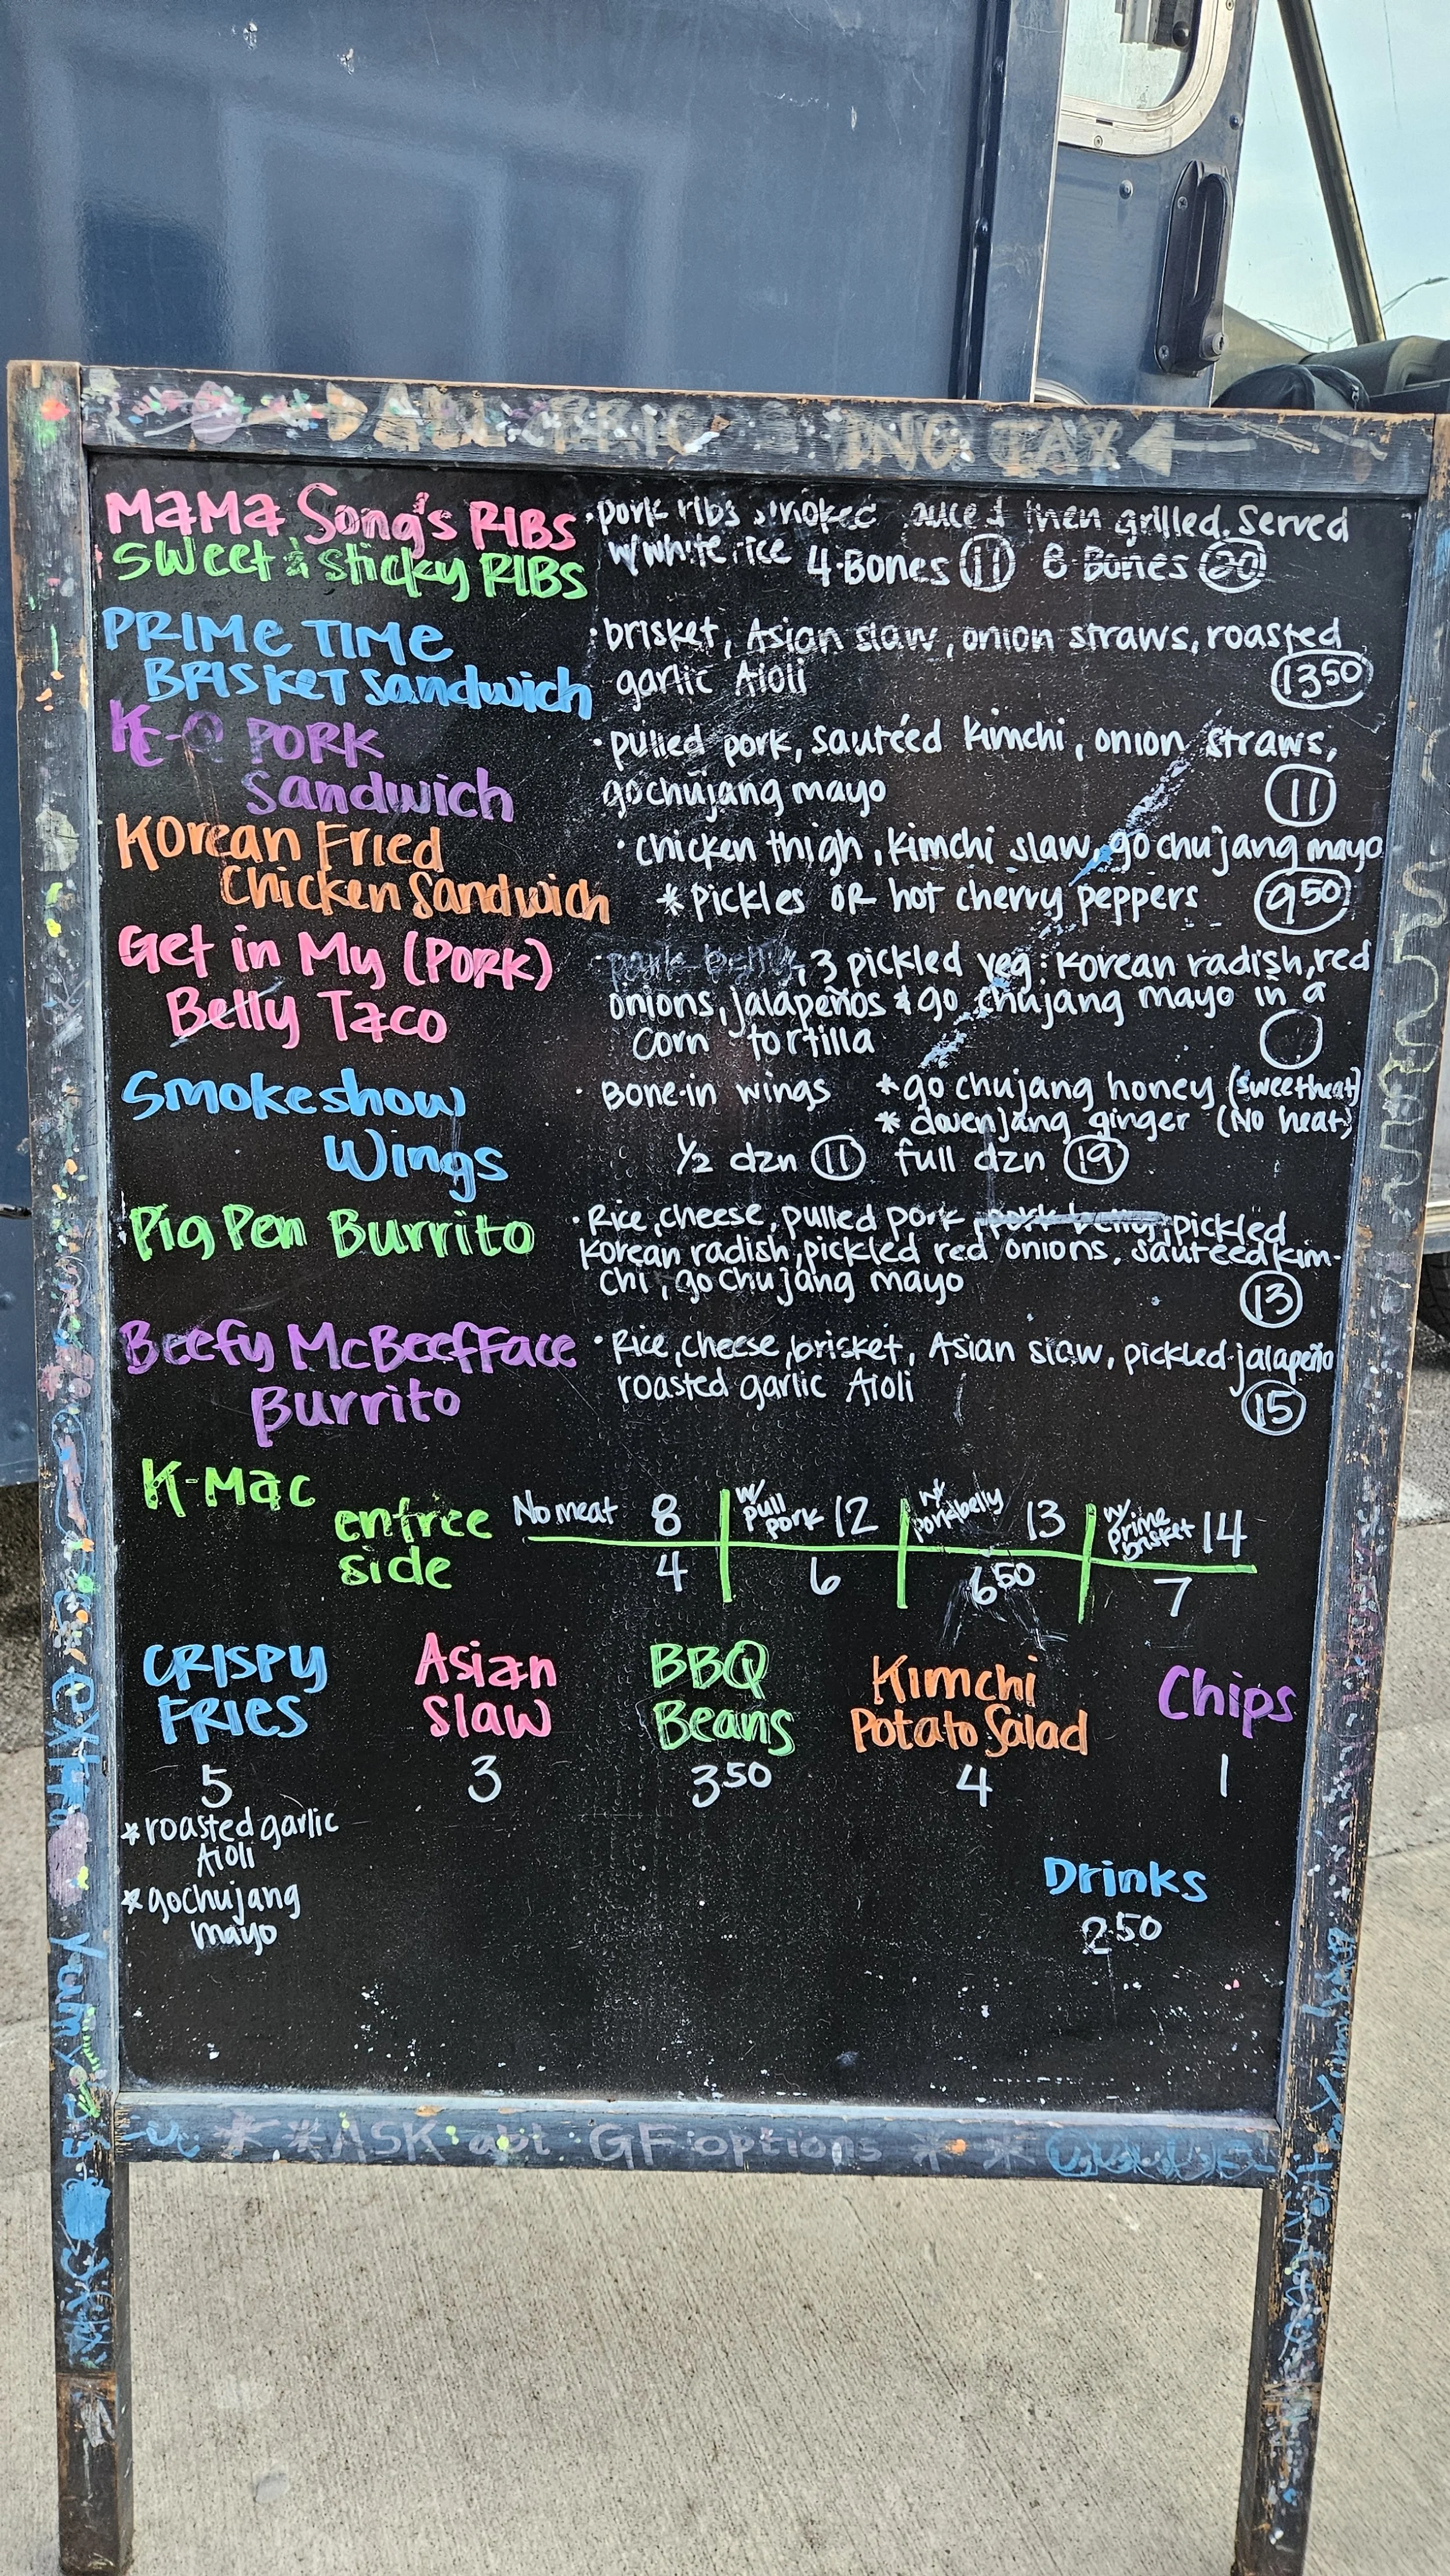 ING TAX
MAMA Song's RIBS
SWEET & Sticky RIBS
·pork ribs smoked sauced then grilled. Served
w/white rice 4·Bones 11 8 Bones 20
PRIME TIME
BRISKET Sandwich
·brisket, Asian slaw, onion straws, roasted
garlic Aioli 13 50
KE-Q PORK
Sandwich
·pulled pork, sautéed kimchi, onion straws,
gochujang mayo 11
Korean Fried
Chicken Sandwich
·chicken thigh, kimchi slaw, go chujang mayo
*pickles OR hot cherry peppers 9 50
Get in My (PORK)
Belly Taco
·pork belly, 3 pickled veg: Korean radish, red
onions, jalapeños & go chujang mayo in a
corn tortilla
Smokeshow
Wings
·Bone-in wings *go chujang honey (sweetheat)
*dwenjang ginger (No heat)
1/2 dzn 11 full dzn 19
Pig Pen Burrito
·Rice, cheese, pulled pork, pork belly, pickled
Korean radish, pickled red onions, sauteed kim-
chi, go chujang mayo
13
Beefy McBeefFace
Burrito
·Rice, cheese, brisket, Asian slaw, pickled jalapeño
roasted garlic Aioli
15
K-Mac
entree No meat 8 w/ pull pork 12 w/ porkbelly 13 w/ prime brisket 14
side 4 6 6 50 7
CRISPY
FRIES
5
*roasted garlic
Aioli
*gochujang
mayo
Asian
slaw
3
BBQ
Beans
3 50
Kimchi
Potato Salad
4
Chips
1
Drinks
2 50
**ASK abt GF options **